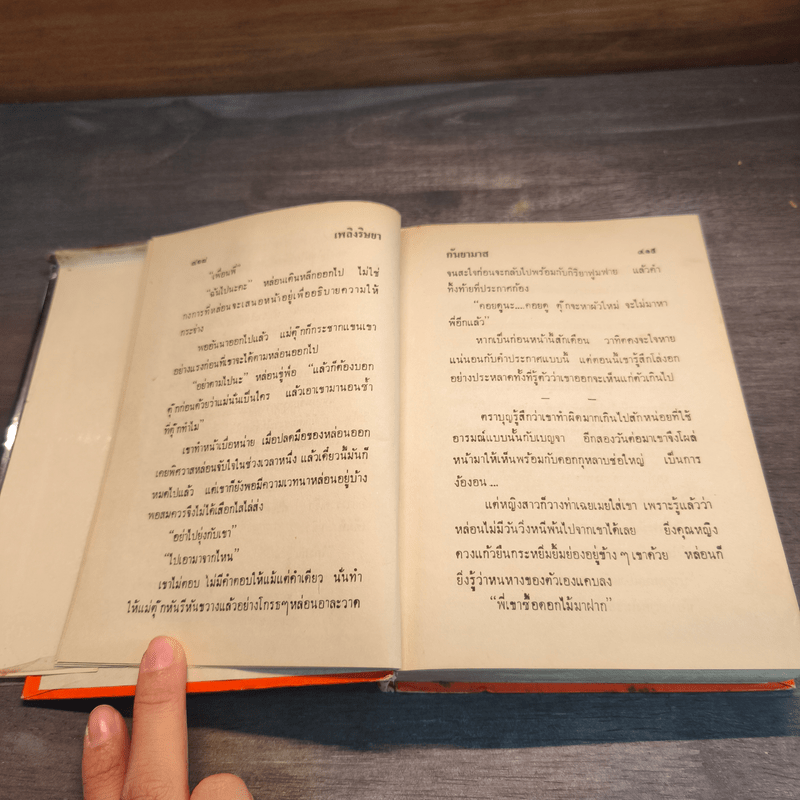 ๔๑๔
เพลิงริษยา
"เพื่อนพี่"
"ฉันไปนะคะ" หล่อนเดินหลีกออกไป ไม่ใช่
คงการที่หล่อนจะเสนอหน้าอยู่เพื่ออธิบายความให้
กระจ่าง
พออันนาออกไปแล้ว แม่ตุ๊กก็กระชากแขนเขา
อย่างแรงก่อนที่เขาจะได้ตามหล่อนออกไป
"อย่าตามไปนะ" หล่อนขู่ฟ่อ "แล้วก็ต้องบอก
ตุ๊กก่อนด้วยว่าแม่นั่นเป็นใคร แล้วเอาเขามานอนซ้ำ
ที่ตุ๊กทำไม"
เขาทำหน้าเบื่อหน่าย เมื่อปลดมือของหล่อนออก
เคยพิศวาสหล่อนจับใจในช่วงเวลาหนึ่ง แล้วเดี๋ยวนี้มันก็
หมดไปแล้ว แต่เขาก็ยังพอมีความเวทนาหล่อนอยู่บ้าง
พอสมควรจึงไม่ได้เสือกไสไล่ส่ง
"อย่าไปยุ่งกับเขา"
"ไปเอามาจากไหน"
เขาไม่ตอบ ไม่มีคำตอบให้แม้แต่คำเดียว นั่นทำ
ให้แม่ตุ๊กหันรีหันขวางแล้วอย่างโกรธๆหล่อนอาละวาด
กันยามาส
๔๑๕
จนสะใจก่อนจะกลับไปพร้อมกับกิริยาฟูมฟาย แล้วคำ
ทิ้งท้ายที่ประกาศก้อง
"คอยดูนะ....คอยดู ตุ๊กจะหาผัวใหม่ จะไม่มาหา
พี่อีกแล้ว"
หากเป็นก่อนหน้านี้สักเดือน วาทิตคงจะใจหาย
แน่นอนกับคำประกาศแบบนี้ แต่ตอนนี้เขารู้สึกโล่งอก
อย่างประหลาดทั้งที่รู้ตัวว่าเขาออกจะเห็นแก่ตัวเกินไป
— —
ตราบุญรู้สึกว่าเขาทำผิดมากเกินไปสักหน่อยที่ใช้
อารมณ์แบบนั้นกับเบญจา อีกสองวันต่อมาเขาจึงโผล่
หน้ามาให้เห็นพร้อมกับดอกกุหลาบช่อใหญ่ เป็นการ
ง้องอน ...
แต่หญิงสาวก็วางท่าเฉยเมยใส่เขา เพราะรู้แล้วว่า
หล่อนไม่มีวันวิ่งหนีพ้นไปจากเขาได้เลย ยิ่งคุณหญิง
ดวงแก้วยืนกระหยิ่มยิ้มย่องอยู่ข้าง ๆ เขาด้วย หล่อนก็
ยิ่งรู้ว่าหนทางของตัวเองแคบลง
"พี่เขาซื้อดอกไม้มาฝาก"